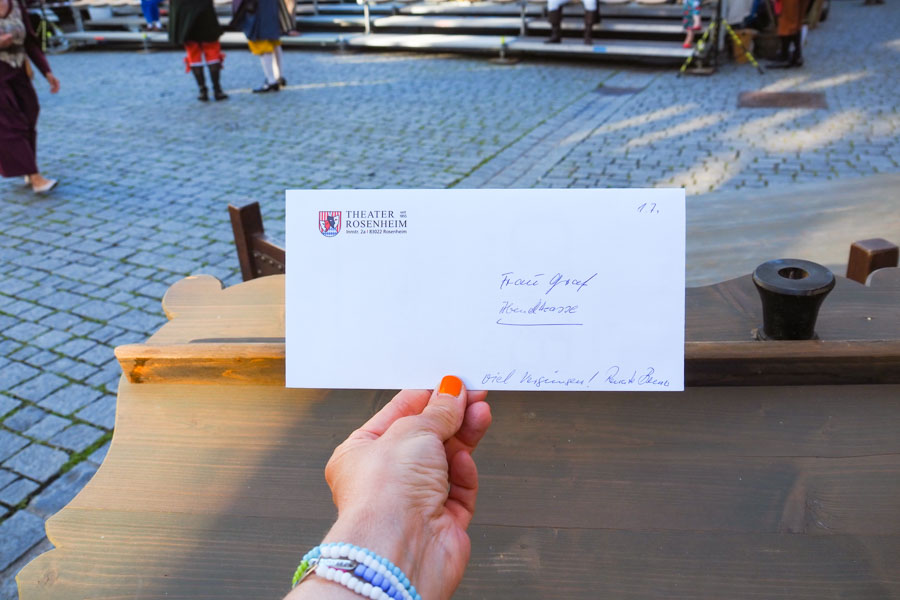 THEATER
ROSENHEIM
Innstr. 2a | 83022 Rosenheim
1.7.
Frau Graf
Abendkasse
Viel Vergnügen!